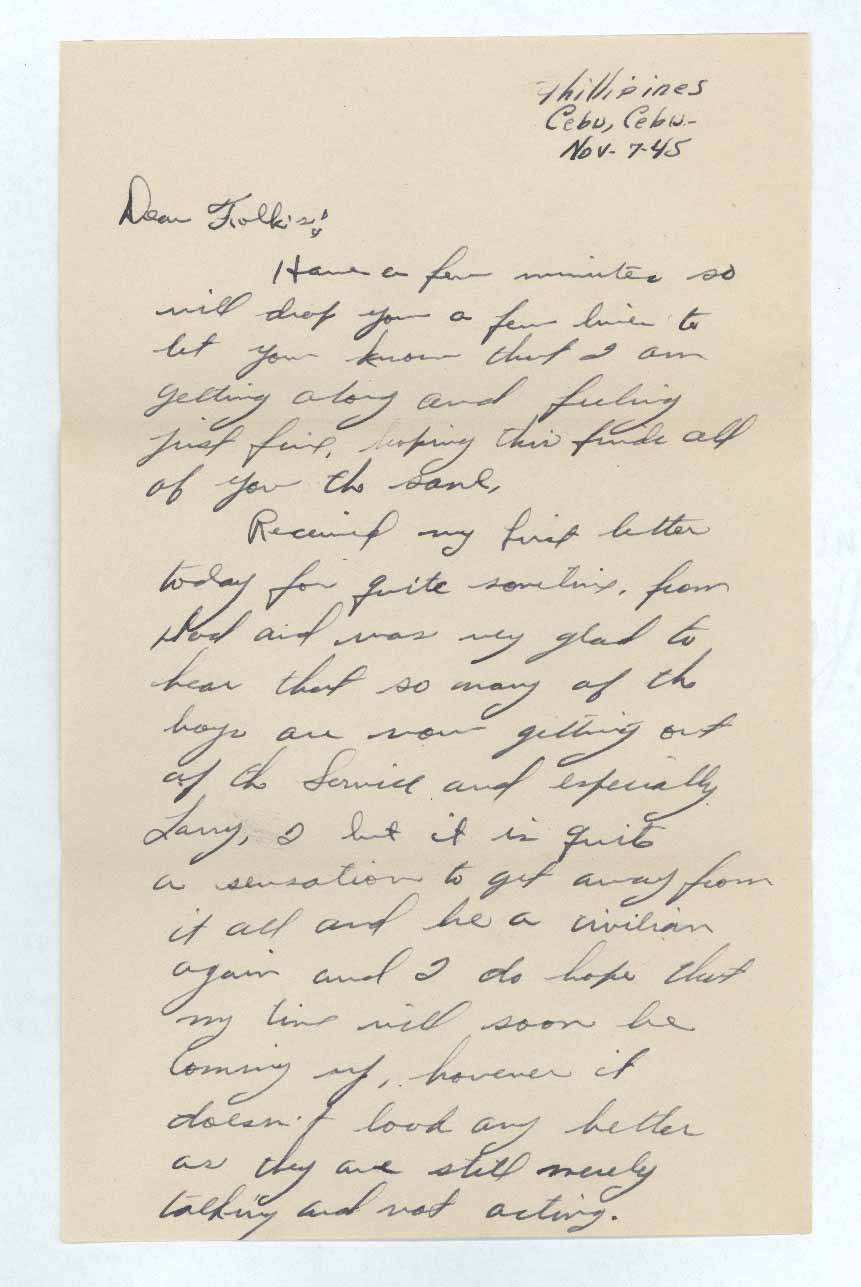 Phillipines
Cebu, Cebu-
Nov- 7-45
Dear Folkes:
Have a few minutes so
will drop you a few lines to
let you know that I am
getting along and feeling
just fine, hoping this finds all
of you the same,
Received my first letter
today for quite sometime, from
Dad and was very glad to
hear that so many of the
boys are now getting out
of the Service and especially
Larry, I bet it is quite
a sensation to get away from
it all and be a civilian
again and I do hope that
my time will soon be
coming up, however it
doesn't look any better
as they are still merely
talking and not acting.